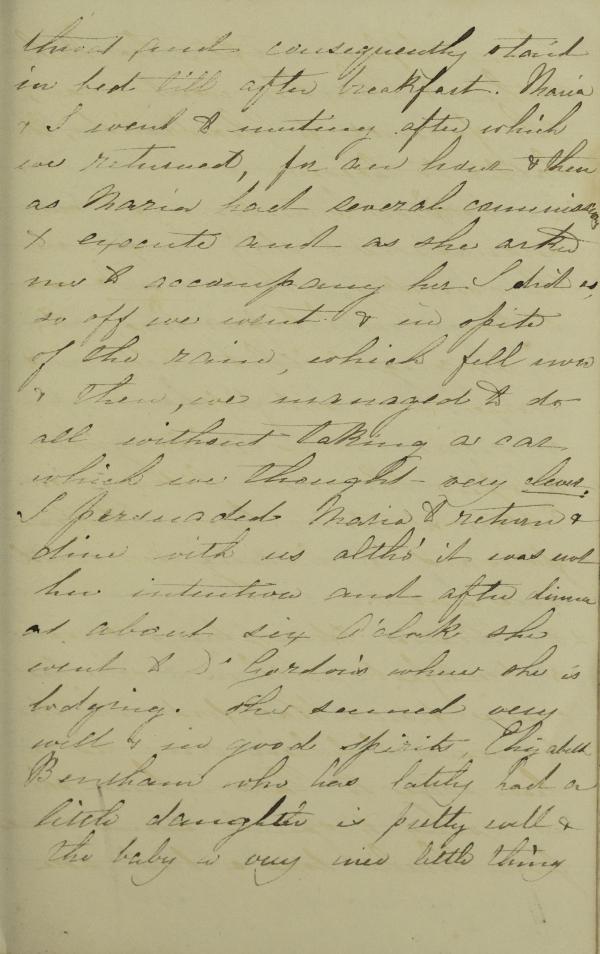 throat and consequently staid
in bed till after breakfast. Maria
& I went to meeting after which
we returned, for an hour & then
as Maria had several commissions
to execute and as she asked
me to accompany her I did so,
so off we went & in spite
of the rain, which fell now
& then, we managed to do
all without taking a car
which we thought very clever.
I persuaded Maria to return &
dine with us altho' it was not
her intention and after dinner
at about six O'clock she
went to Dr Gordon's where she is
lodging. She seemed very
well & in good spirits, Elizabeth
Bentham who has lately had a
little daughter is pretty well &
the baby a very nice little thing